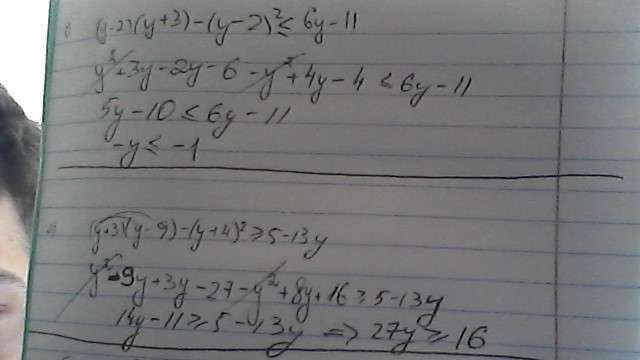 1) (y-2)(y+3)-(y-2)²≤ 6y-11
y²+3y-2y-6-y²+4y-4 ≤ 6y-11
5y-10 ≤ 6y-11
-y ≤ -1
2) (y+3)(y-9)-(y+4)²≥5-13y
y²-9y+3y-27-y²+8y+16≥5-13y
14y-11≥5-13y ⇒ 27y≥16